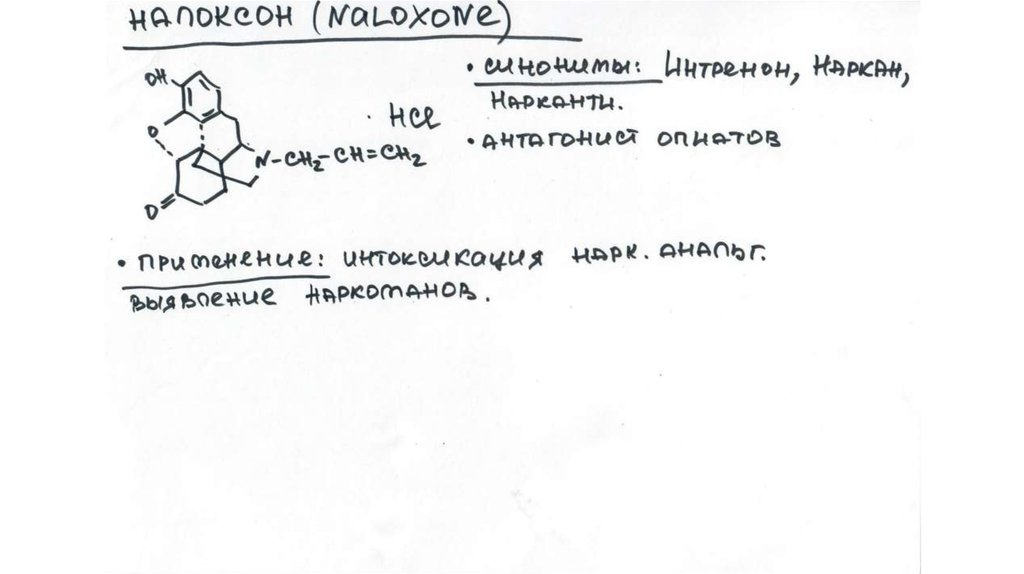 НАЛОКСОН (NALOXONE)
• СИНОНИМЫ: ИНТРЕНОН, НАРКАН,
НАРКАНТИ.
• АНТАГОНИСТ ОПИАТОВ
OH
O
· HCl
N-CH₂-CH=CH₂
O
• ПРИМЕНЕНИЕ: ИНТОКСИКАЦИЯ НАРК. АНАЛЬГ.
ВЫЯВЛЕНИЕ НАРКОМАНОВ.